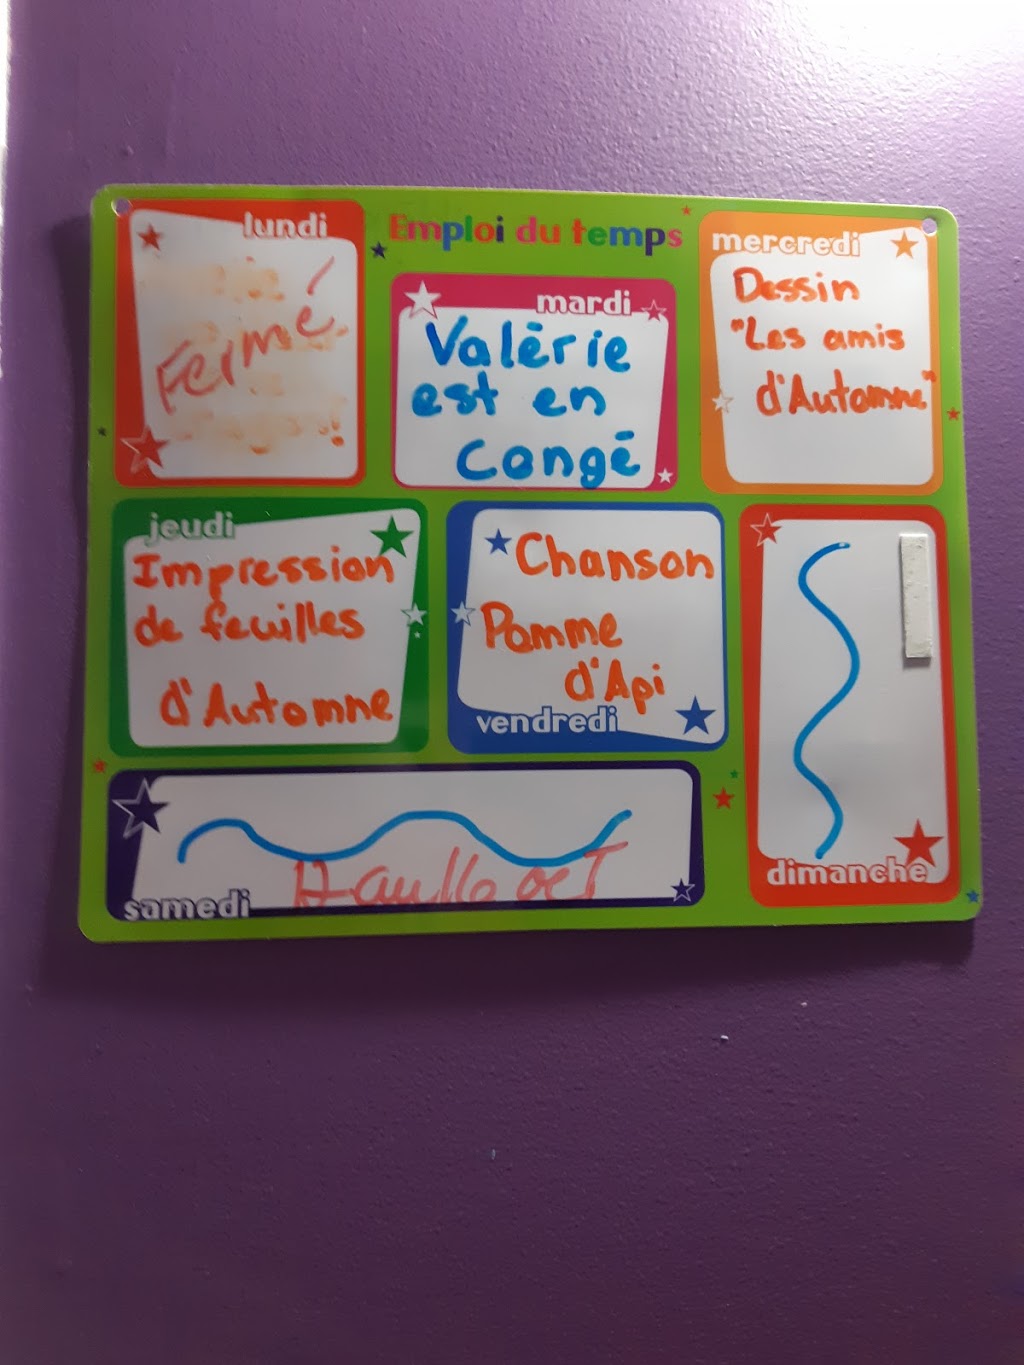 Emploi du temps
lundi
Fermé.
mardi
Valérie
est en
congé
mercredi
Dessin
"Les amis
d'Automne"
jeudi
Impression
de feuilles
d'Automne
Chanson
Pomme
d'Api
vendredi
samedi
dimanche